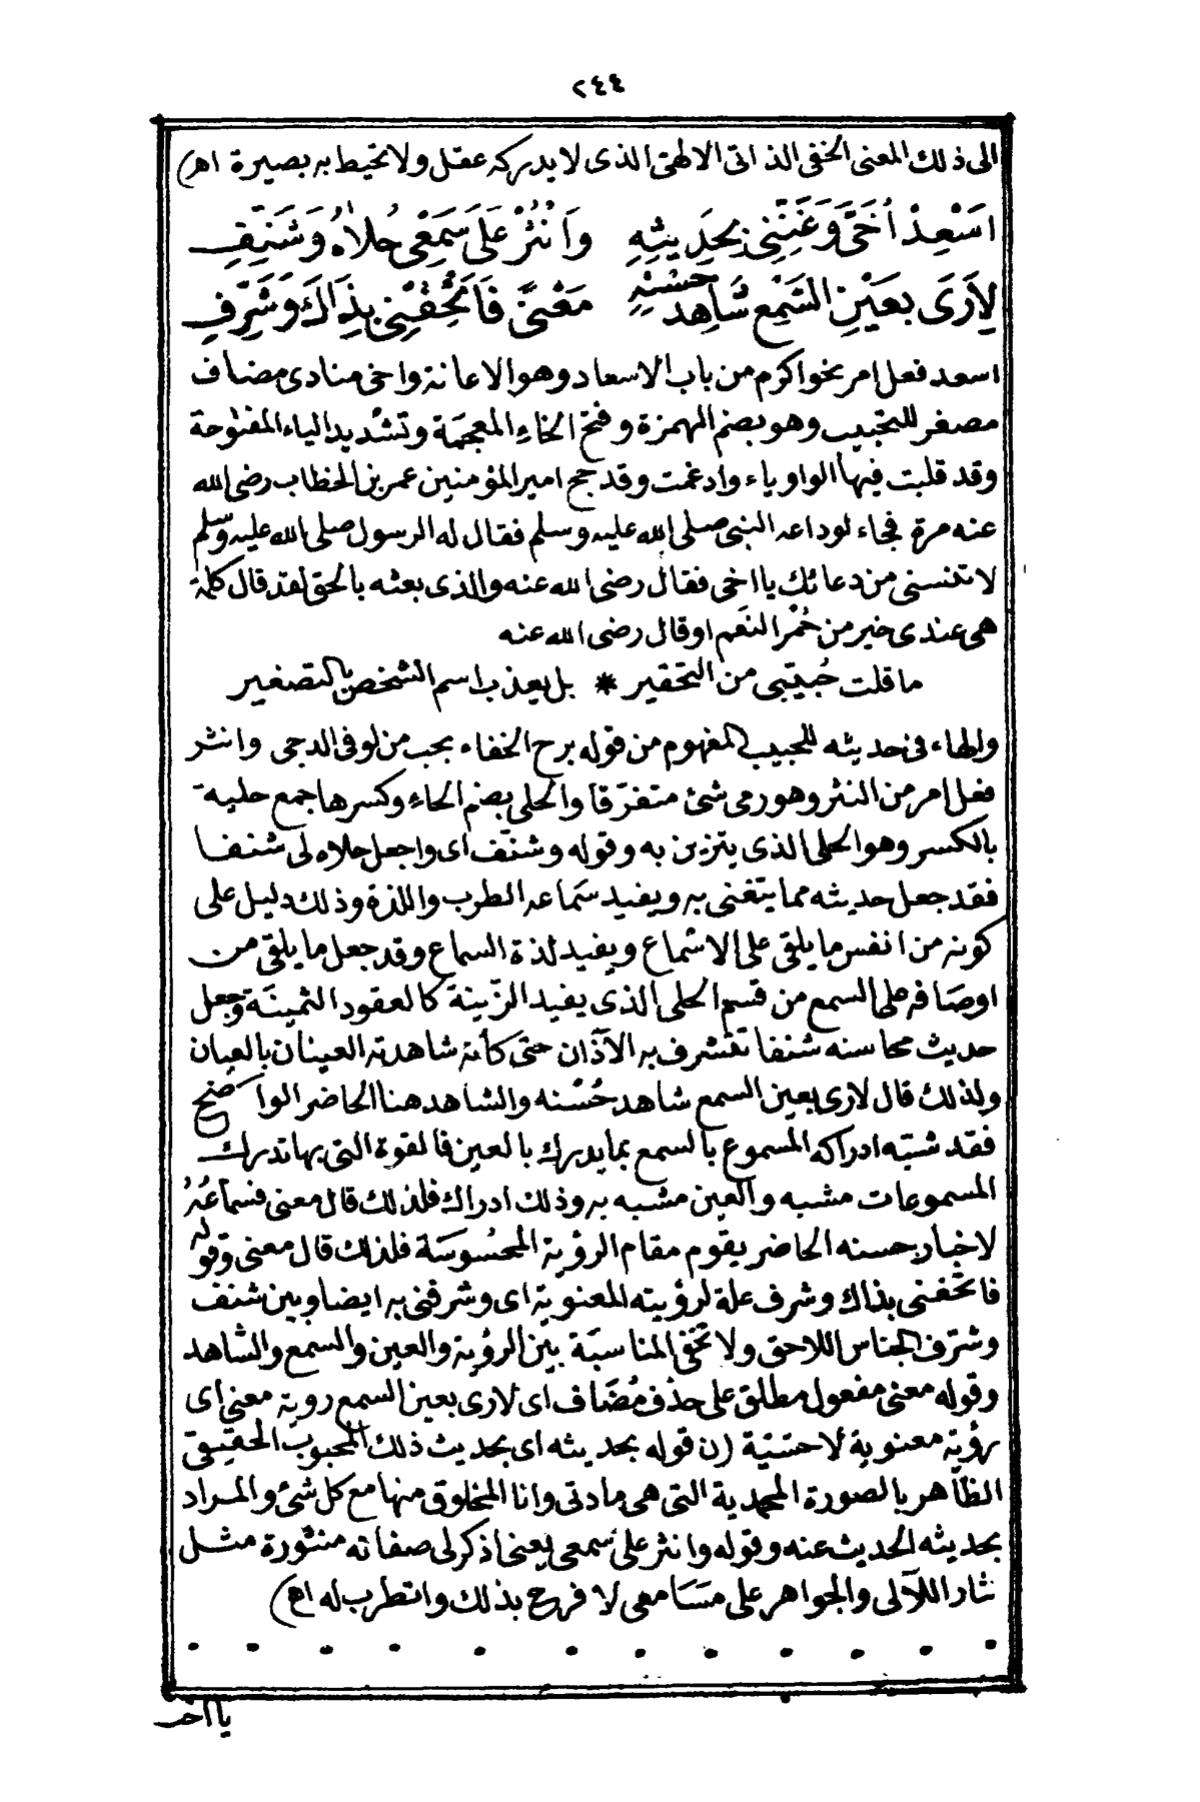 ٢٤٤
الى ذلك المعنى الخفى الذاتى الالهى الذى لا يدركه عقل ولا تحيط به بصيرة اهـ)
اَسْعِدْ اُخَىَّ وَغَنِّنِى بِحَدِيثِهِ وَانْثُرْ عَلَى سَمْعِى حُلاهُ وَشَنِّفِ
لِاَرَى بِعَيْنِ السَّمْعِ شَاهِدَ حُسْنِهِ مَعْنىً فَاَتْحِفْنِى بِذَاكَ وَشَرِّفِ
اسعد فعل امر نحو اكرم من باب الاسعاد وهو الاعانة واخى منادى مضاف
مصغر للتحبيب وهو بضم الهمزة وفتح الخاء المعجمة وتشديد الياء المفتوحة
وقد قلبت فيها الواو ياء وادغمت وقد حج امير المؤمنين عمر بن الخطاب رضى الله
عنه مرة فجاء لوداعه النبى صلى الله عليه وسلم فقال له الرسول صلى الله عليه وسلم
لا تنسنى من دعائك يا اخى فقال رضى الله عنه والذى بعثه بالحق لقد قال كلمة
هى عندى خير من حُمْر النَعَم او قال رضى الله عنه
ما قلت حُبيّبى من التحقير * بل يعذب اسم الشخص بالتصغير
والهاء فى حديثه للحبيب المفهوم من قوله برح الخفاء بحب من لو فى الدجى وانثر
فعل امر من النثر وهو رمى شئ متفرّقا والحلى بضم الحاء وكسرها جمع حلية
بالكسر وهو الحلى الذى يتزين به وقوله وشنّف اى واجعل حلاه لى شنفا
فقد جعل حديثه مما يتغنى به ويفيد سَماعه الطرب واللذة وذلك دليل على
كونه من انفس ما يلقى على الاسماع ويفيد لذة السماع وقد جعل ما يلقى من
اوصَافه على السمع من قسم الحلى الذى يفيد الزّينة كالعقود الثمينَة وجعل
حديث محاسنه شنفا تتشرف به الآذان حتى كأنه شاهدته العينان بالعيان
ولذلك قال لارى بعين السمع شاهد حُسْنه والشاهد هنا الحاضر الواضح
فقد شبّه ادراكه المسموع بالسمع بما يدرك بالعين فالقوة التى بها تدرك
المسموعات مشبه والعين مشبه به وذلك ادراك فلذلك قال معنى فسماعُهُ
لاخبار حسنه الحاضر يقوم مقام الرؤية المحسُوسَة فلذلك قال معنى وقوله
فاتحفنى بذاك وشرف علة لرؤيته المعنوية اى وشرفنى به ايضا وبين شنف
وشرّف الجناس اللاحق ولا تخفى المناسبَة بين الرؤية والعين والسمع والشاهد
وقوله معنى مفعول مطلق على حذف مُضَاف اى لارى بعين السمع روية معنى اى
رؤية معنوية لا حسّيّة (ن قوله بحديثه اى بحديث ذلك المحبوب الحقيقى
الظاهر بالصورة المحمدية التى هى مادتى وانا المخلوق منها مع كل شئ والمراد
بحديثه الحديث عنه وقوله وانثر على سمعى يعنى اذكر لى صفاته منثورة مثل
نثار اللآلى والجواهر على مسَامعى لا فرح بذلك واتطرب له اهـ)